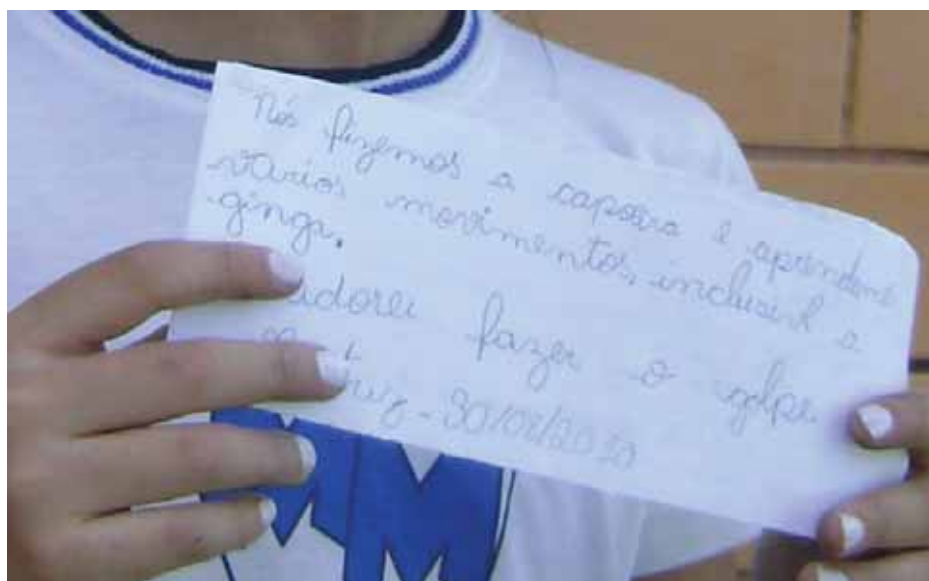 Nós fizemos a capoeira e aprendemos
varios movimentos, inclusive a
ginga.
adorei fazer o golpe
30/08/2010
MM